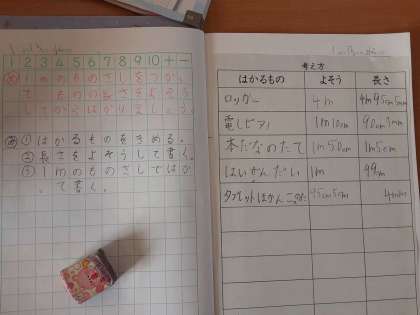 1 2 3 4 5 6 7 8 9 10 + −
1mのものさしをつかっ
て ものの長さをよそう
してからはかりましょう。
①はかるものをきめる。
②長さをよそうして書く。
③1mのものさしではか
って書く。
考え方
はかるもの よそう 長さ
ロッカー 4m 4m95cm5mm
電しピアノ 1m10cm 90cm
本だなのたて 1m50cm 1m5cm
はいぜんだい 1m 99cm
タブレットほかんこのたて 95cm5mm